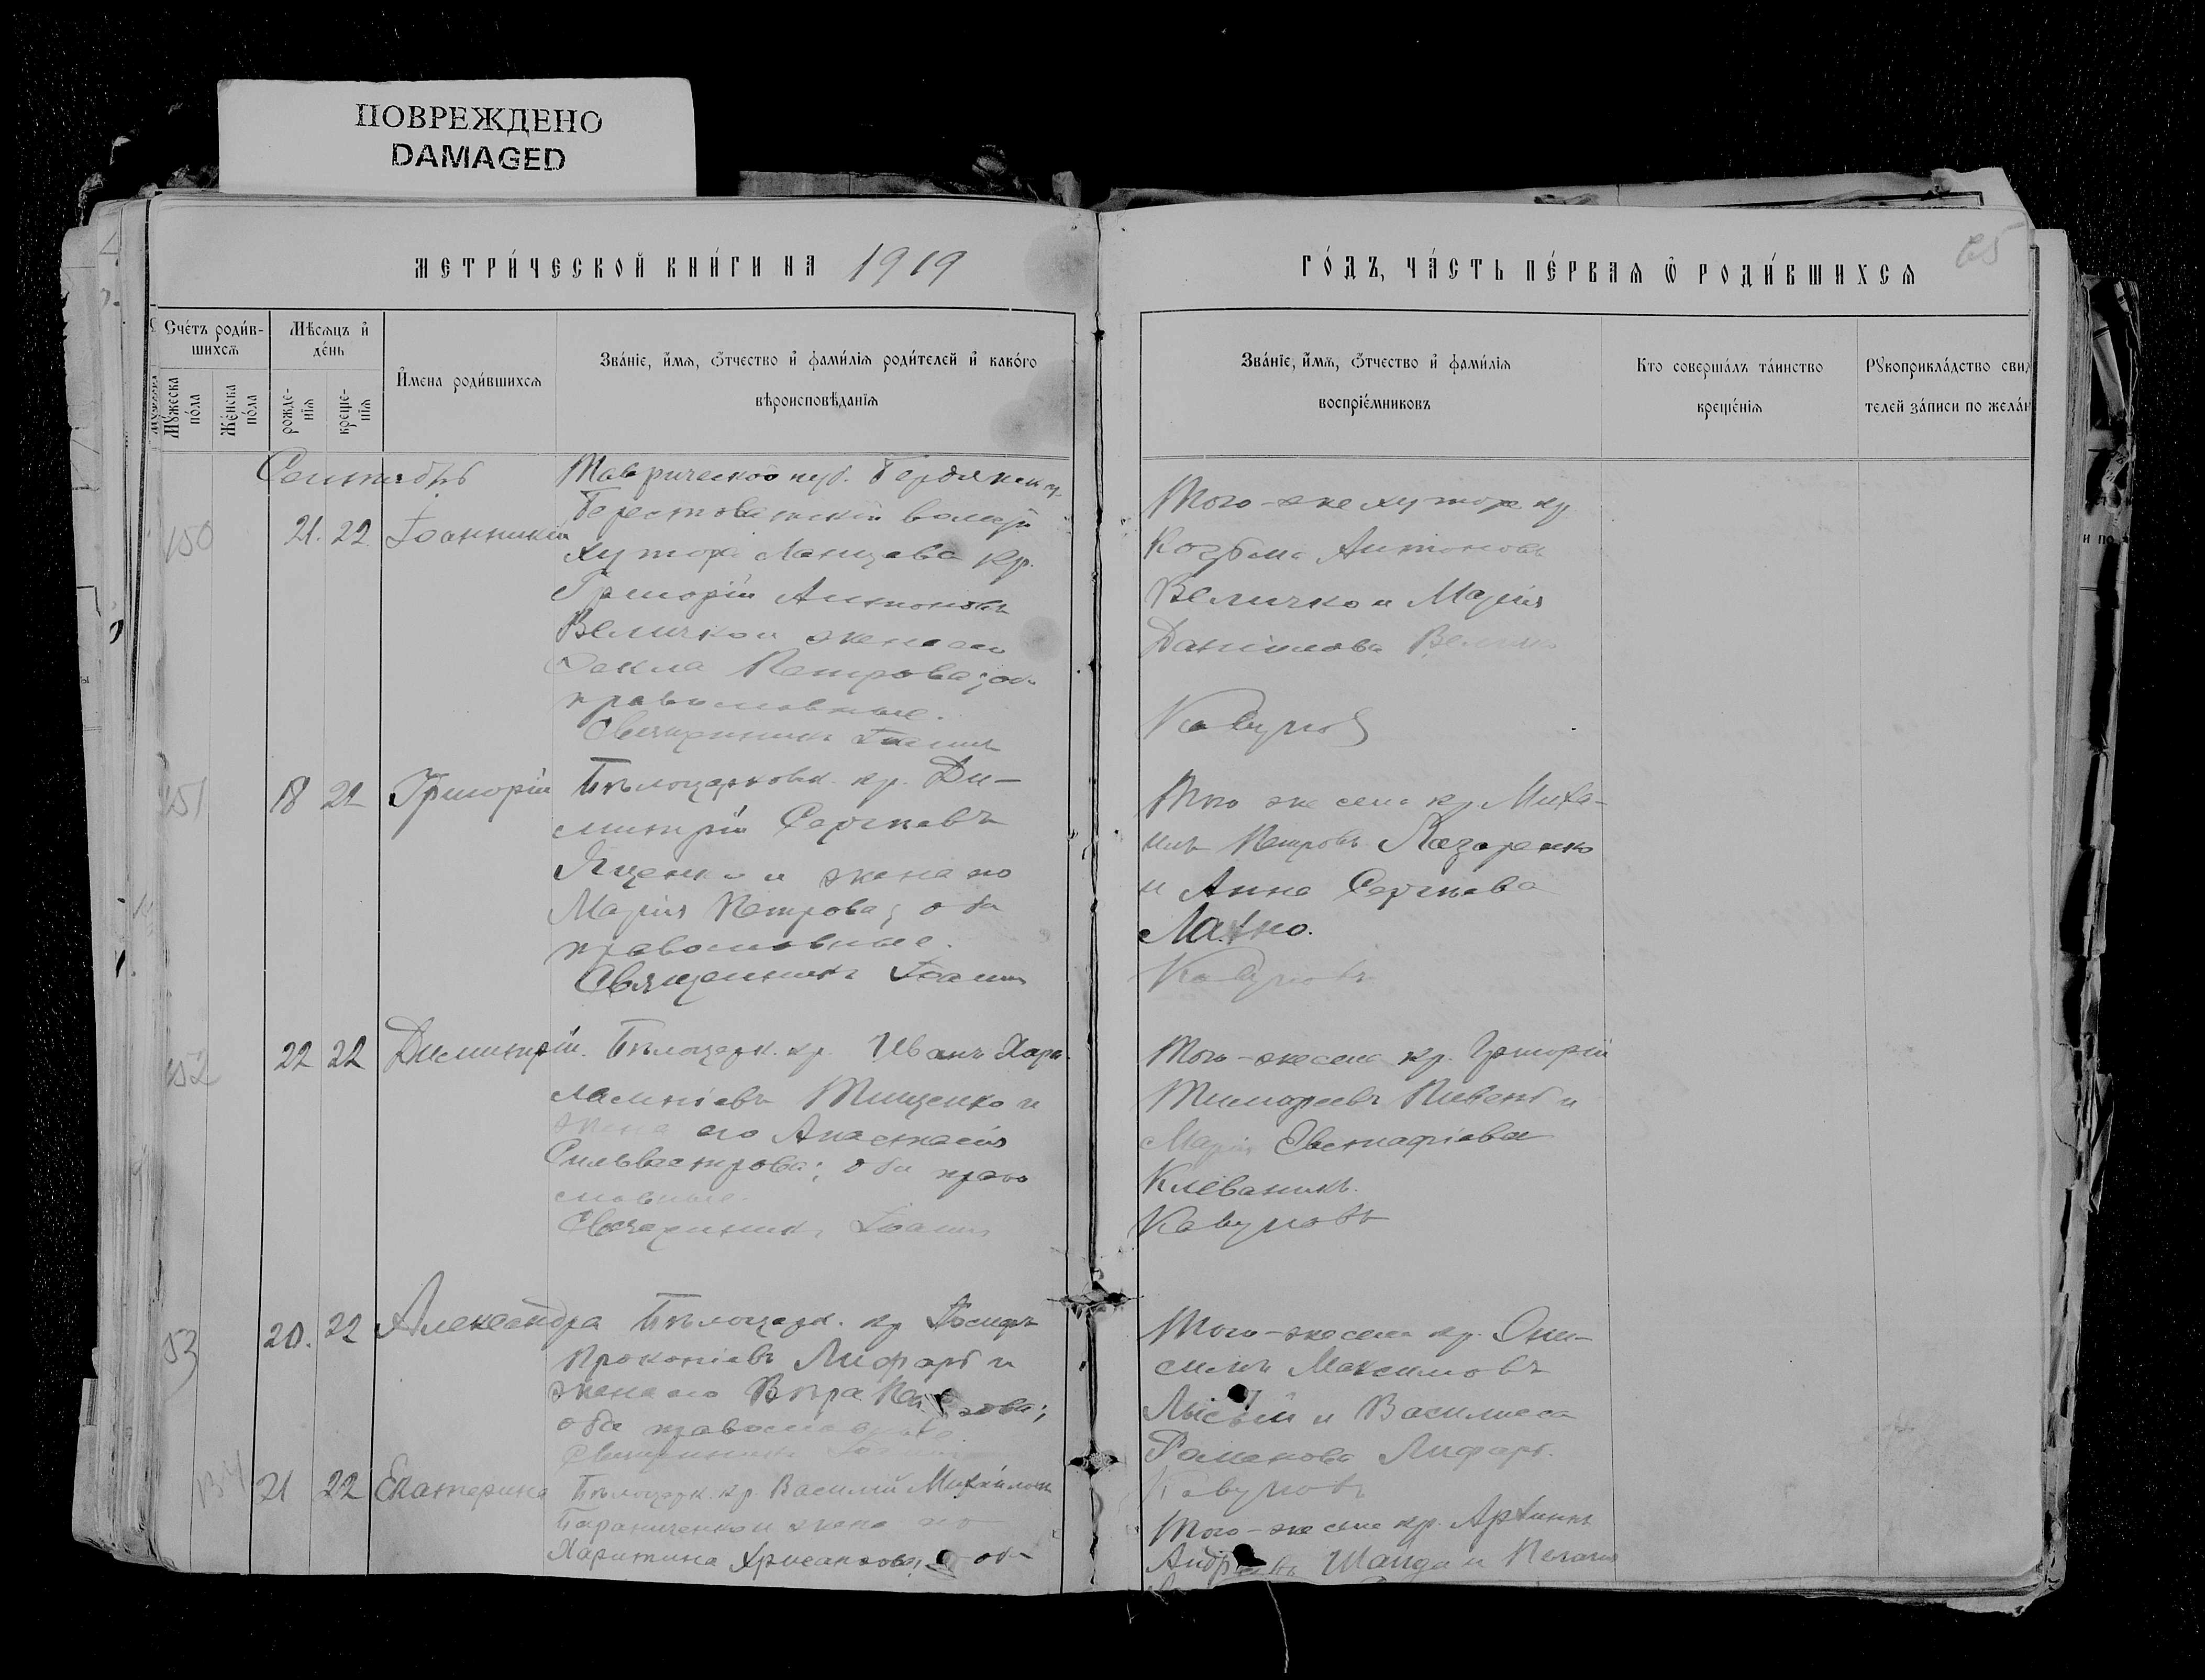 ПОВРЕЖДЕНО
DAMAGED
МЕТРИ́ЧЕСКОЙ КНИ́ГИ НА 1919
ГО́ДЪ, ЧА́СТЬ ПЕ́РВАЯ Ѿ РОДИ́ВШИХСЯ
65
Сче́тъ роди́в-
шихсѧ
Мѣсѧцъ и҆
де́нь
Мꙋжеска
по́ла
Же́нска
по́ла
рожде-
нїѧ
креще-
нїѧ
И҆мена роди́вшихсѧ
Зва́нїе, и҆́мѧ, ѻ҆́тчество и҆ фами́лїѧ роди́телей и҆ како́го
вѣроисповѣ́данїѧ
Зва́нїе, и҆́мѧ, ѻ҆́тчество и҆ фами́лїѧ
воспрїе́мниковъ
Кто соверша́лъ та́инство
креще́нїѧ
Рꙋкоприкла́дство сви
телей за́писи по жела́н
Сентябрь
Таврической губ. Бердянск у.
Берестовской волости
150 21. 22 Іоанникій
хутора Ланцева кр.
Григорій Антоновъ
Величко и жена его
Фекла Петрова; оба
православные.
Священникъ Іоаннъ
Того-же хутора кр
Козьма Антоновъ
Величко и Марія
Данилова Величко
Кавуновъ
151 18 22 Григорій Бѣлоцерковк. кр. Ди-
митрій Сергѣевъ
Яценко и жена его
Марія Петрова; оба
православные.
Священникъ Іоаннъ
Того же села кр. Миха-
илъ Петровъ Лазаренко
и Анна Сергѣева
Лахно.
Кавуновъ
152 22 22 Димитрій. Бѣлоцерк. кр. Иванъ Хара-
лампіевъ Тищенко и
жена его Анастасія
Сильвестрова; оба право
славные.
Священникъ Іоаннъ
Того-же села кр. Григорій
Тимофеевъ Пивень и
Марія Евстафіева
Клеваникъ.
Кавуновъ
53 20. 22 Александра Бѣлоцерк. кр Іосифъ
Прокопіевъ Лифарь и
жена его Вѣра
оба православные.
Священникъ
Того-же села кр. Они-
симъ Максимовъ
Лысый и Василиса
Романова Лифарь.
Кавуновъ
134 21 22 Екатерина Бѣлоцерк. кр. Василій Михайловъ
и жена его
Харитина Хрисанфова; оба
Того-же села кр. Архипъ
Шайда и Пелагія